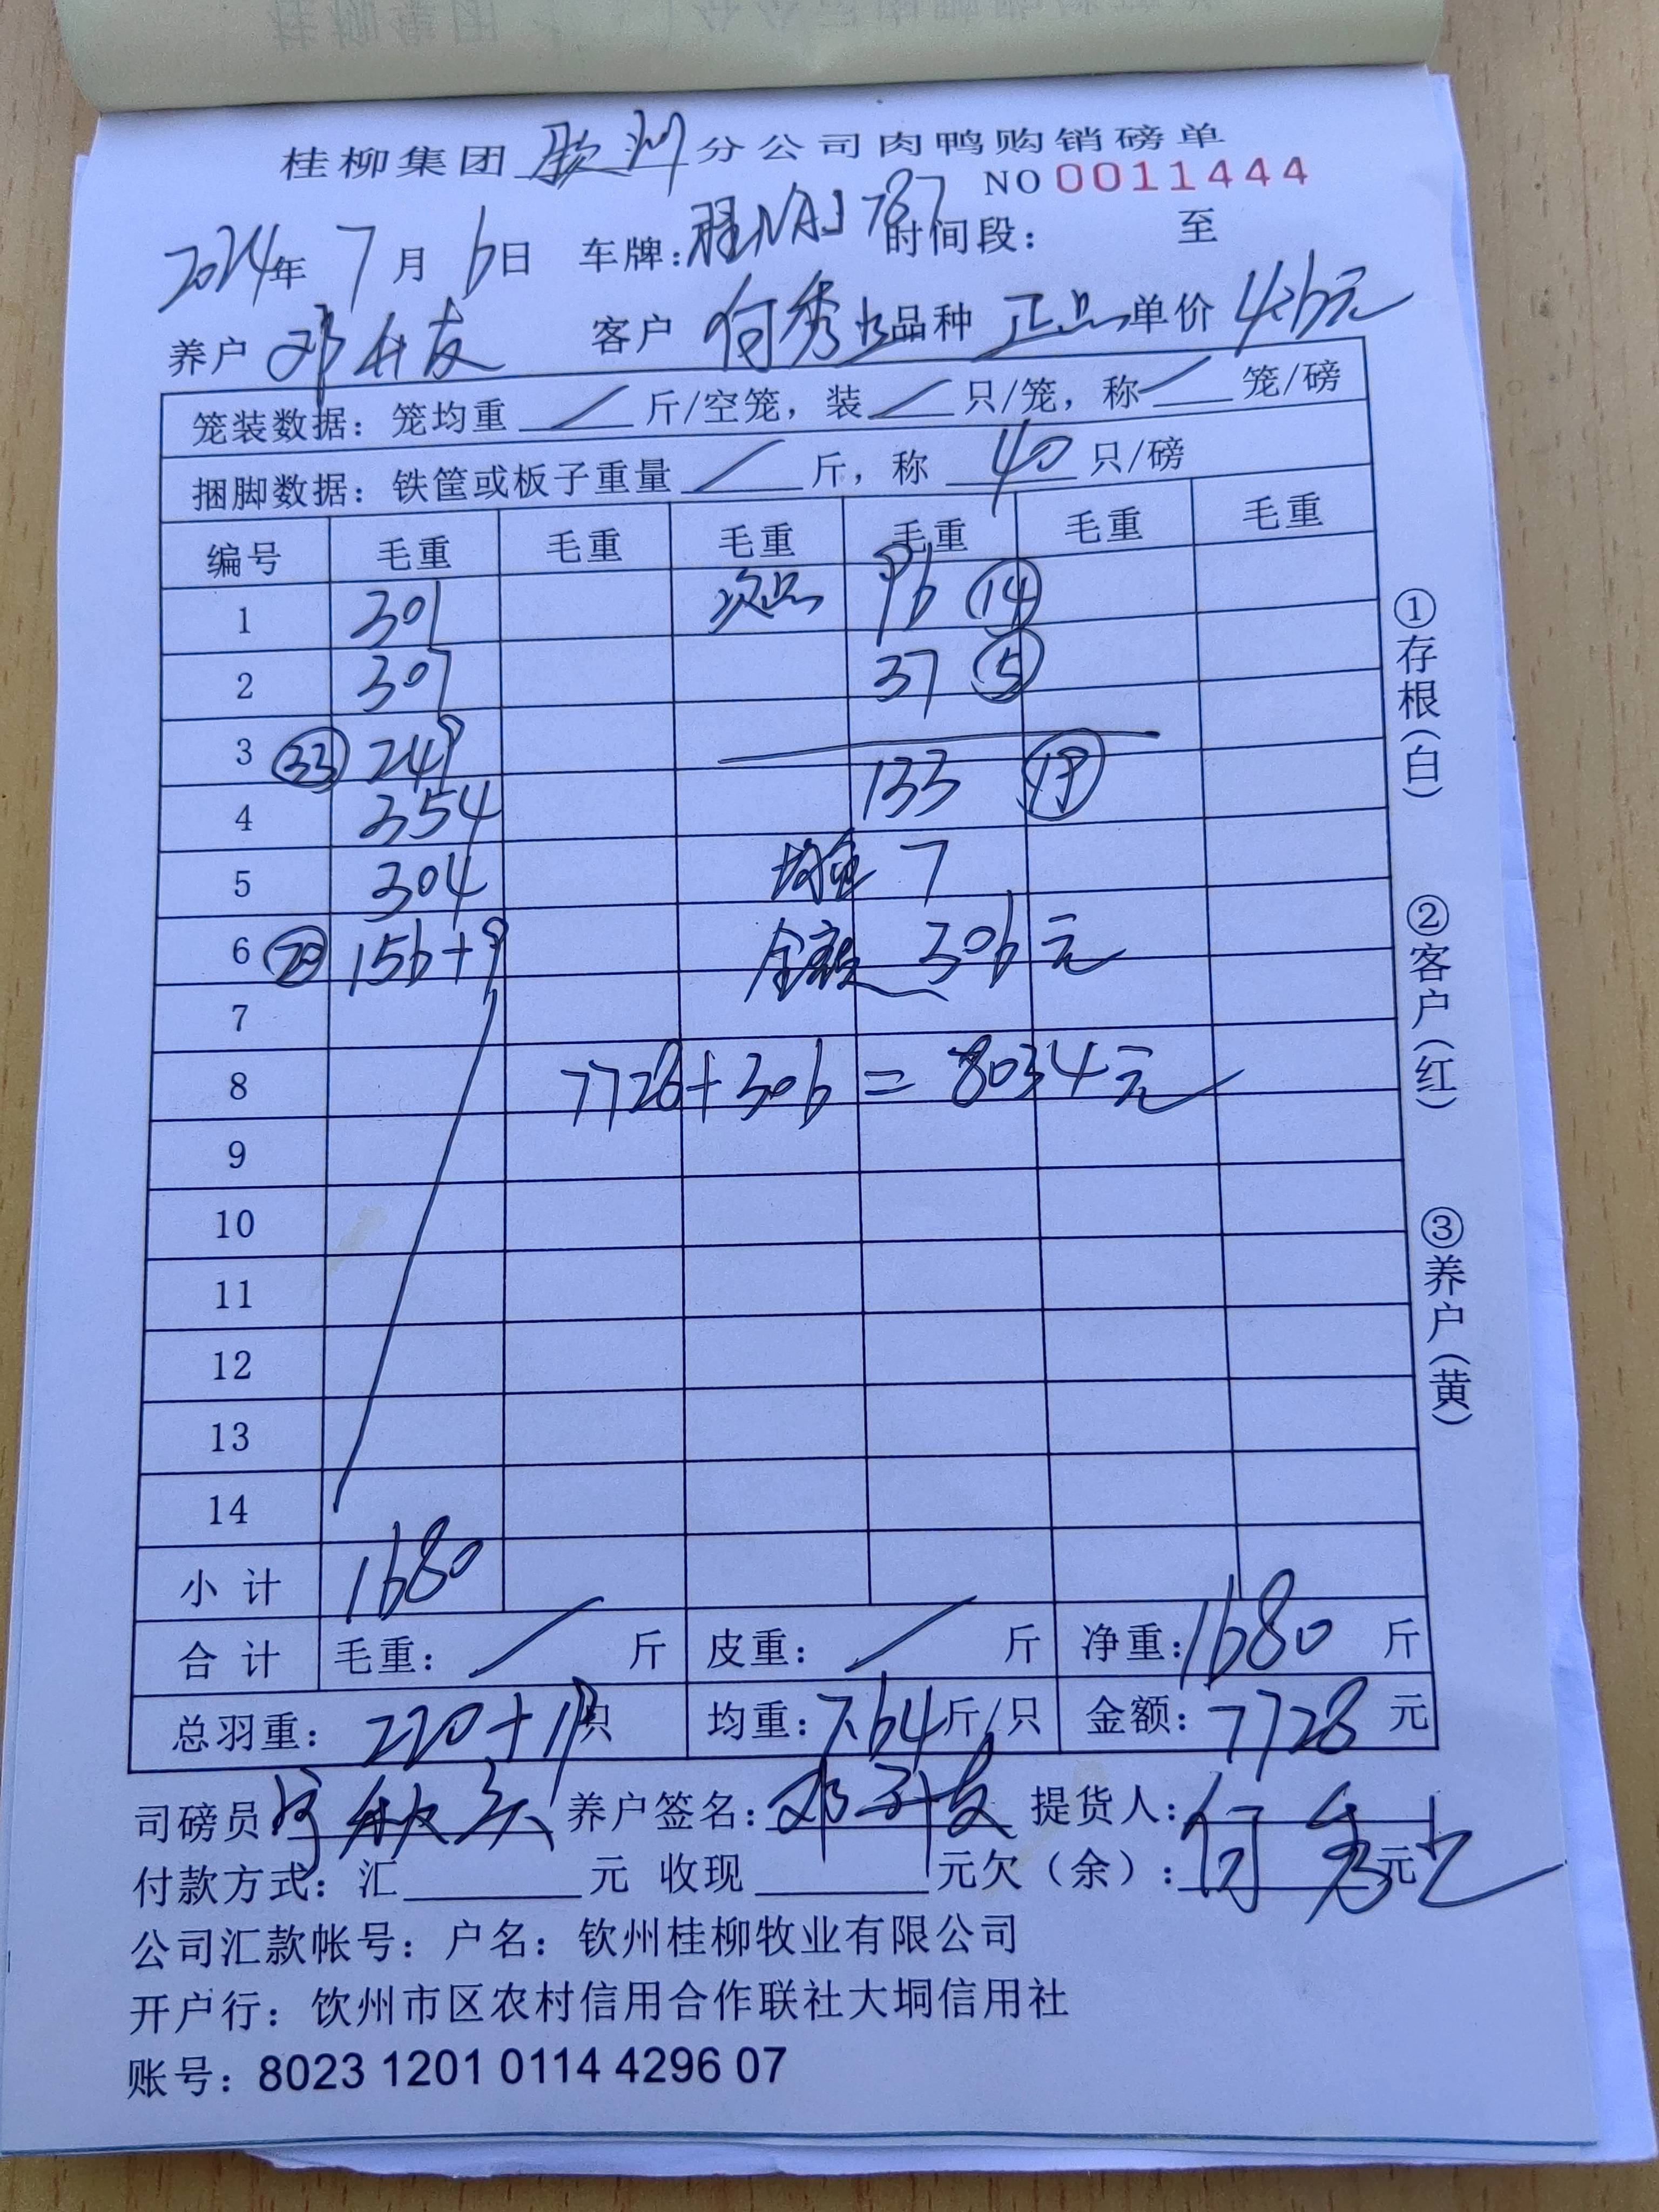 桂柳集团钦州分公司肉鸭购销磅单
NO 0011444
2024年 7月 6日 车牌: 787 时间段: 至
养户 邓 友 客户 何秀 品种 正品 单价 4.6元
笼装数据: 笼均重 / 斤/空笼, 装 / 只/笼, 称 / 笼/磅
捆脚数据: 铁筐或板子重量 / 斤, 称 40 只/磅
编号 毛重 毛重 毛重 毛重 毛重 毛重
1 301 次品 96 ⑭
2 307 37 ⑤
3 ㉝ 249 133 ⑲
4 354
5 304 均重 7
6 ⑳ 156+9 金额 306元
7
8 7728+306=8034元
9
10
11
12
13
14
小计 1680
合计 毛重: / 斤 皮重: / 斤 净重: 1680 斤
总羽重: 220+19只 均重: 7.64斤/只 金额: 7728 元
司磅员 养户签名: 邓 友 提货人: 何秀
付款方式: 汇 元 收现 元 欠(余): 元
公司汇款帐号: 户名: 钦州桂柳牧业有限公司
开户行: 饮州市区农村信用合作联社大垌信用社
账号: 8023 1201 0114 4296 07
①存根(白)
②客户(红)
③养户(黄)